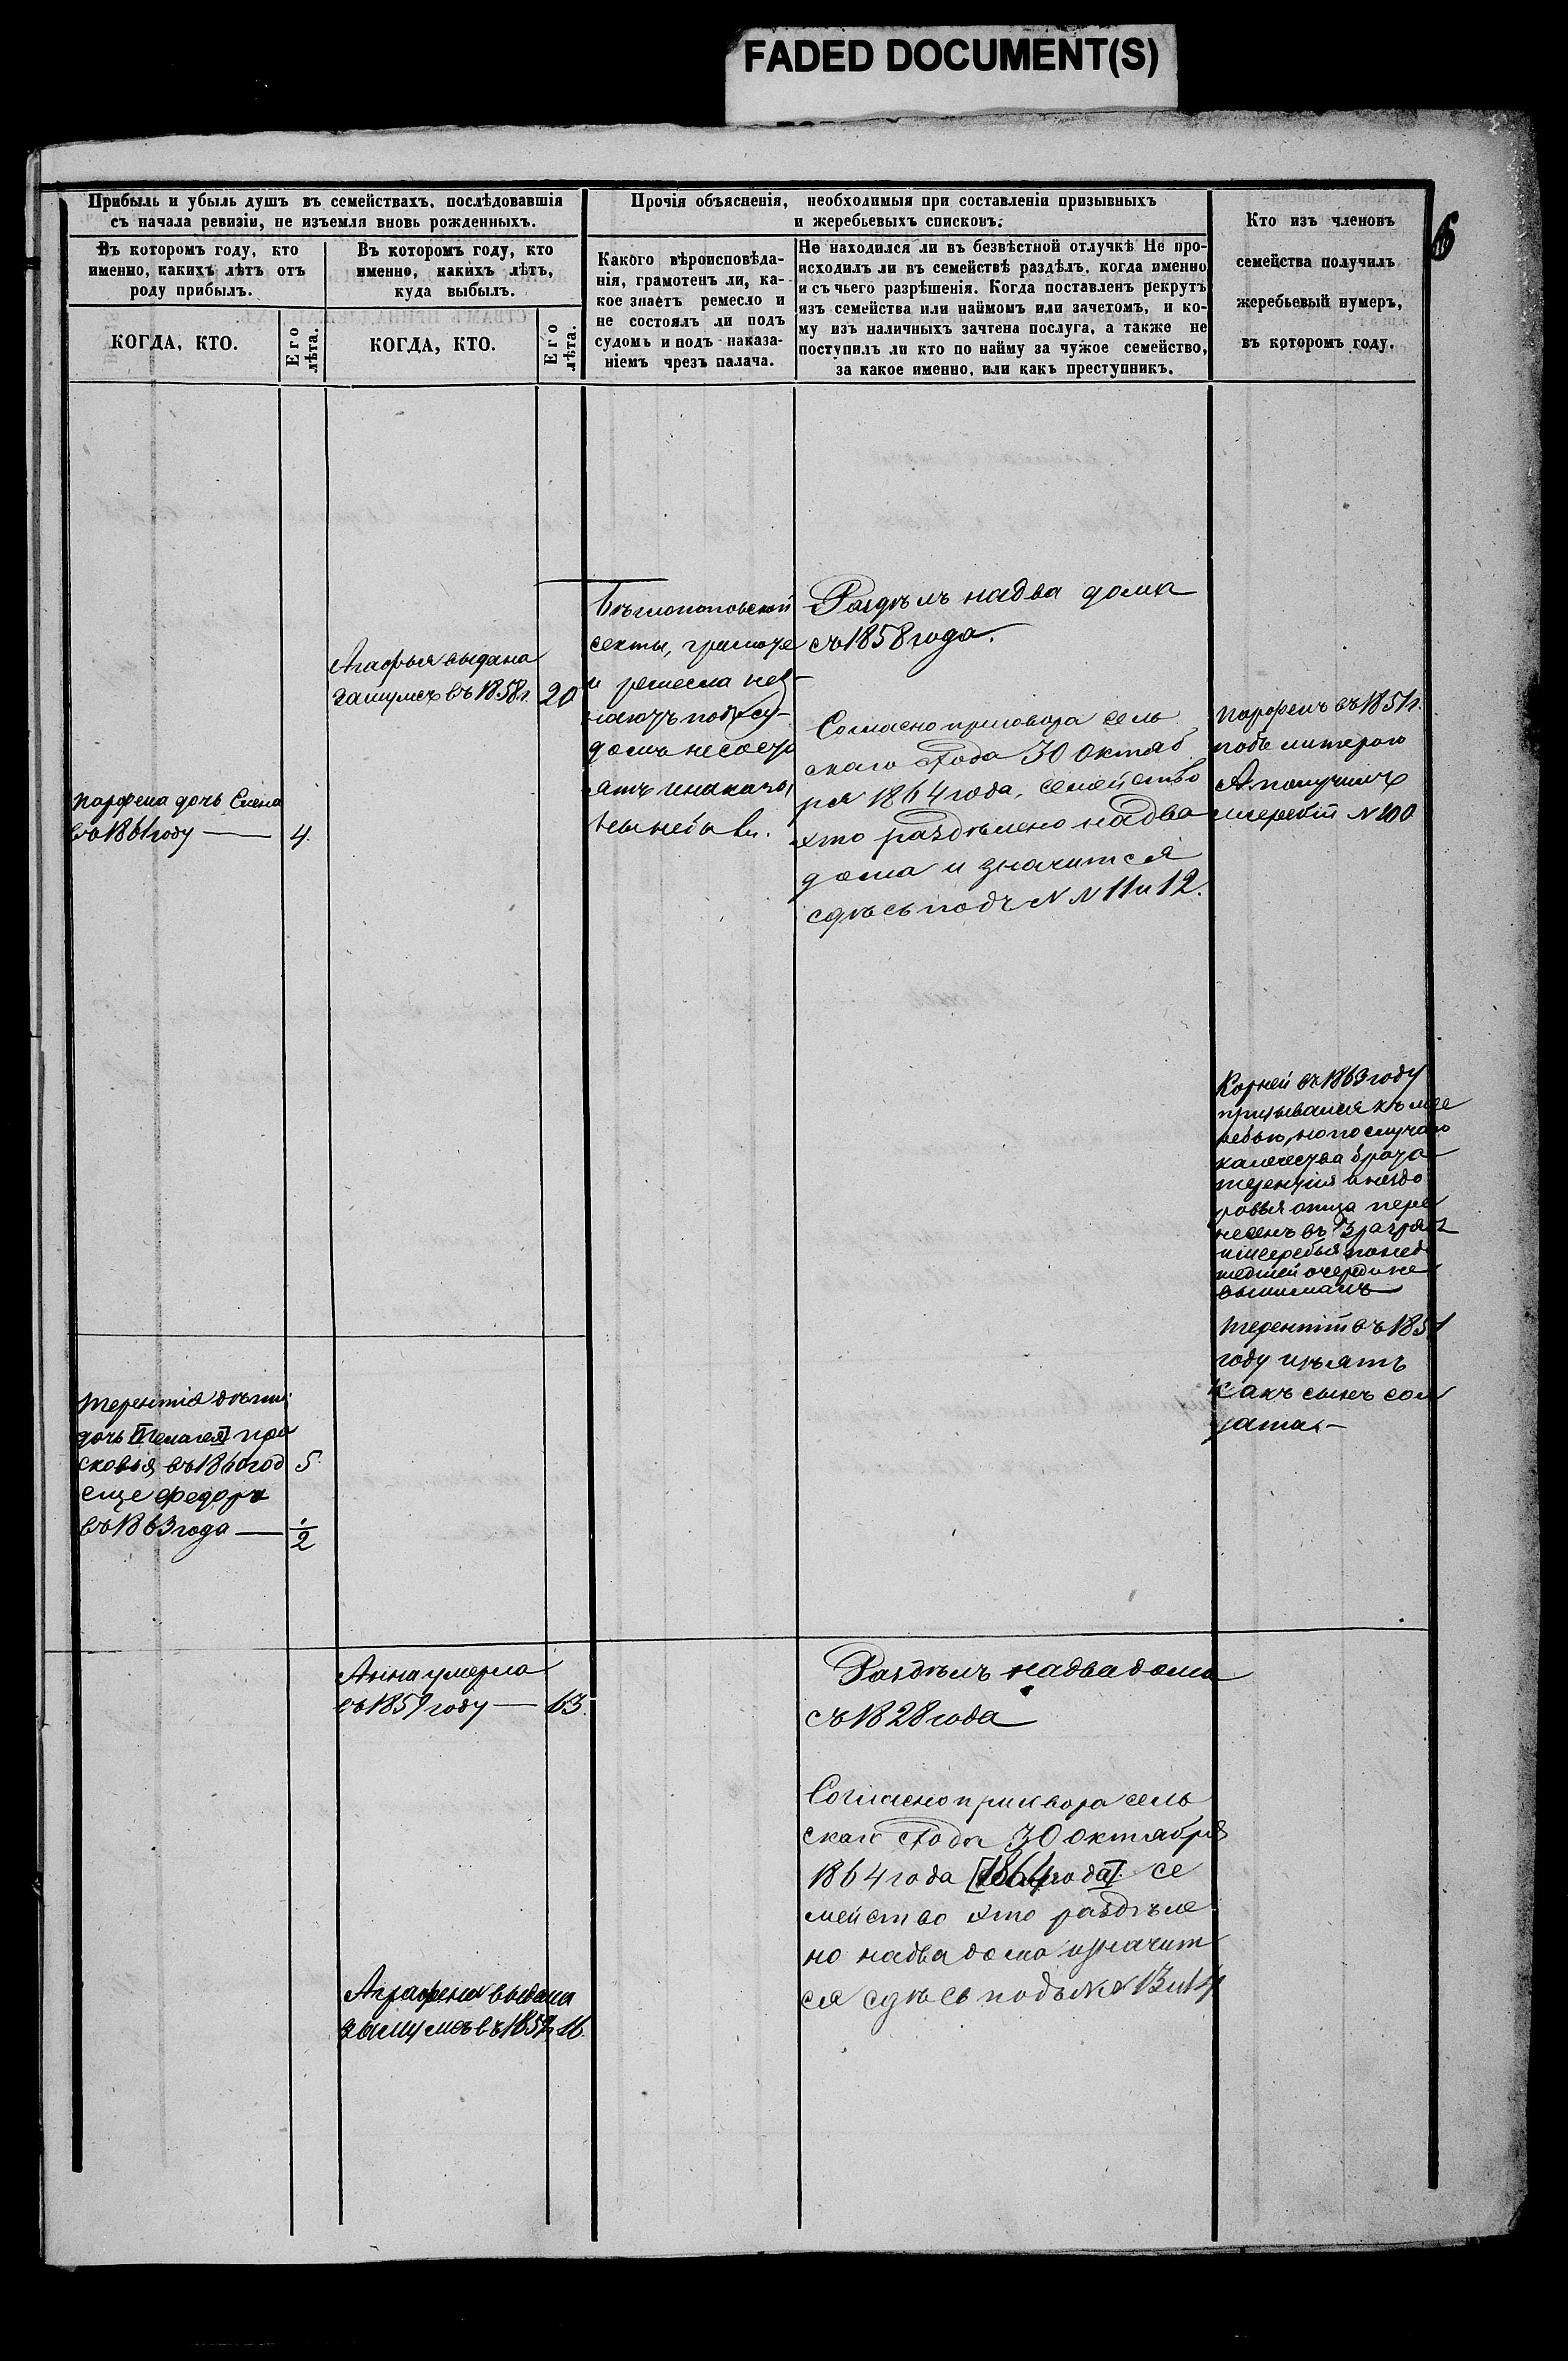 FADED DOCUMENT(S)
6
Прибыль и убыль душъ въ семействахъ, послѣдовавшія
съ начала ревизіи, не изъемля вновь рожденныхъ.
Въ которомъ году, кто
именно, какихъ лѣтъ отъ
роду прибылъ.
Въ которомъ году, кто
именно, какихъ лѣтъ,
куда выбылъ.
КОГДА, КТО.
Его
лѣта.
КОГДА, КТО.
Его
лѣта.
Прочія объясненія, необходимыя при составленіи призывныхъ
и жеребьевыхъ списковъ.
Какого вѣроисповѣда-
нія, грамотенъ ли, ка-
кое знаетъ ремесло и
не состоялъ ли подъ
судомъ и подъ наказа-
ніемъ чрезъ палача.
Не находился ли въ безвѣстной отлучкѣ Не про-
исходилъ ли въ семействѣ раздѣлъ, когда именно
и съ чьего разрѣшенія. Когда поставленъ рекрутъ
изъ семейства или наймомъ или зачетомъ, и ко-
му изъ наличныхъ зачтена послуга, а также не
поступилъ ли кто по найму за чужое семейство,
за какое именно, или какъ преступникъ.
Кто изъ членовъ
семейства получилъ
жеребьевый нумеръ,
въ которомъ году.
Парфена дочь Елена
въ 1861 году — 4.
Агафья выдана
замужъ въ 1858 г. 20
Бѣглопоповской
секты, грамоте
и ремесла нез-
наютъ подъ су-
домъ не состо
ятъ и наказа
ны не бы ли.
Раздѣлъ на два дома
съ 1858 года.
Согласно приговора сель
скаго схода 30 октяб
ря 1864 года, семейство
это раздѣлено на два
дома и значится
сдѣсь подъ N N 11 и 12.
Парфенъ въ 1851 г.
подъ литерою
А получилъ
жеребій N 100
Корней въ 1863 году
призывался къ жее
ребью, но по случаю
калечества брата
Терентія и нездо
ровья отца пере
несенъ въ 3 разрядъ
и жеребья по недо
шедшей очереди не
вынималъ
Терентій въ 1851
году изъятъ
какъ сынъ сол
дата. —
Терентія дѣти
дочь [Пелагея] пра
сковья въ 1860 год 5
еще Федоръ
въ 1863 года — ½
Анна умерла
въ 1859 году — 63.
Раздѣлъ на два дома
съ 1828 года
Согласно приговора сель
скаго схода 30 октября
1864 года [1864 года] се
мейство это раздѣле
но на два дома и значит
ся сдѣсь подъ N N 13 и 14
Аграфена выдана
замужъ въ 1857 г. 16.